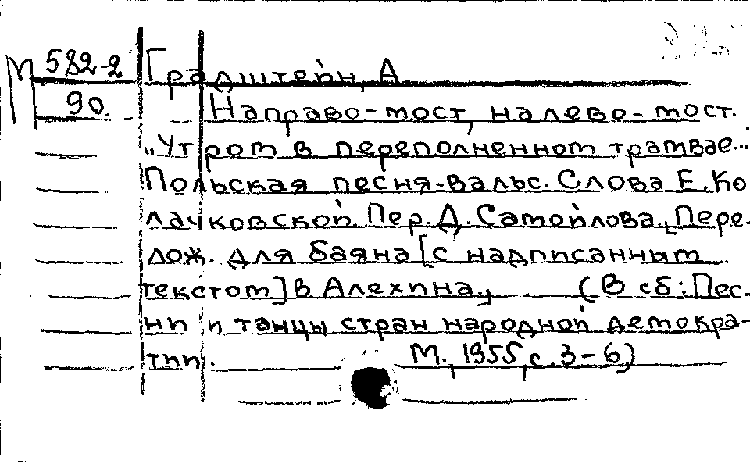 М 582-2 Градштейн, А
90. Направо-мост, налево-мост.
"Утром в переполненном трамвае..."
Польская песня-вальс. Слова Е. Ко
лачковской. Пер. Д. Самойлова. Пере-
лож. для баяна [с надписанным
текстом] В Алехина., (В сб: Пес-
ни и танцы стран народной демокра-
тии. М., 1955, с. 3-6)